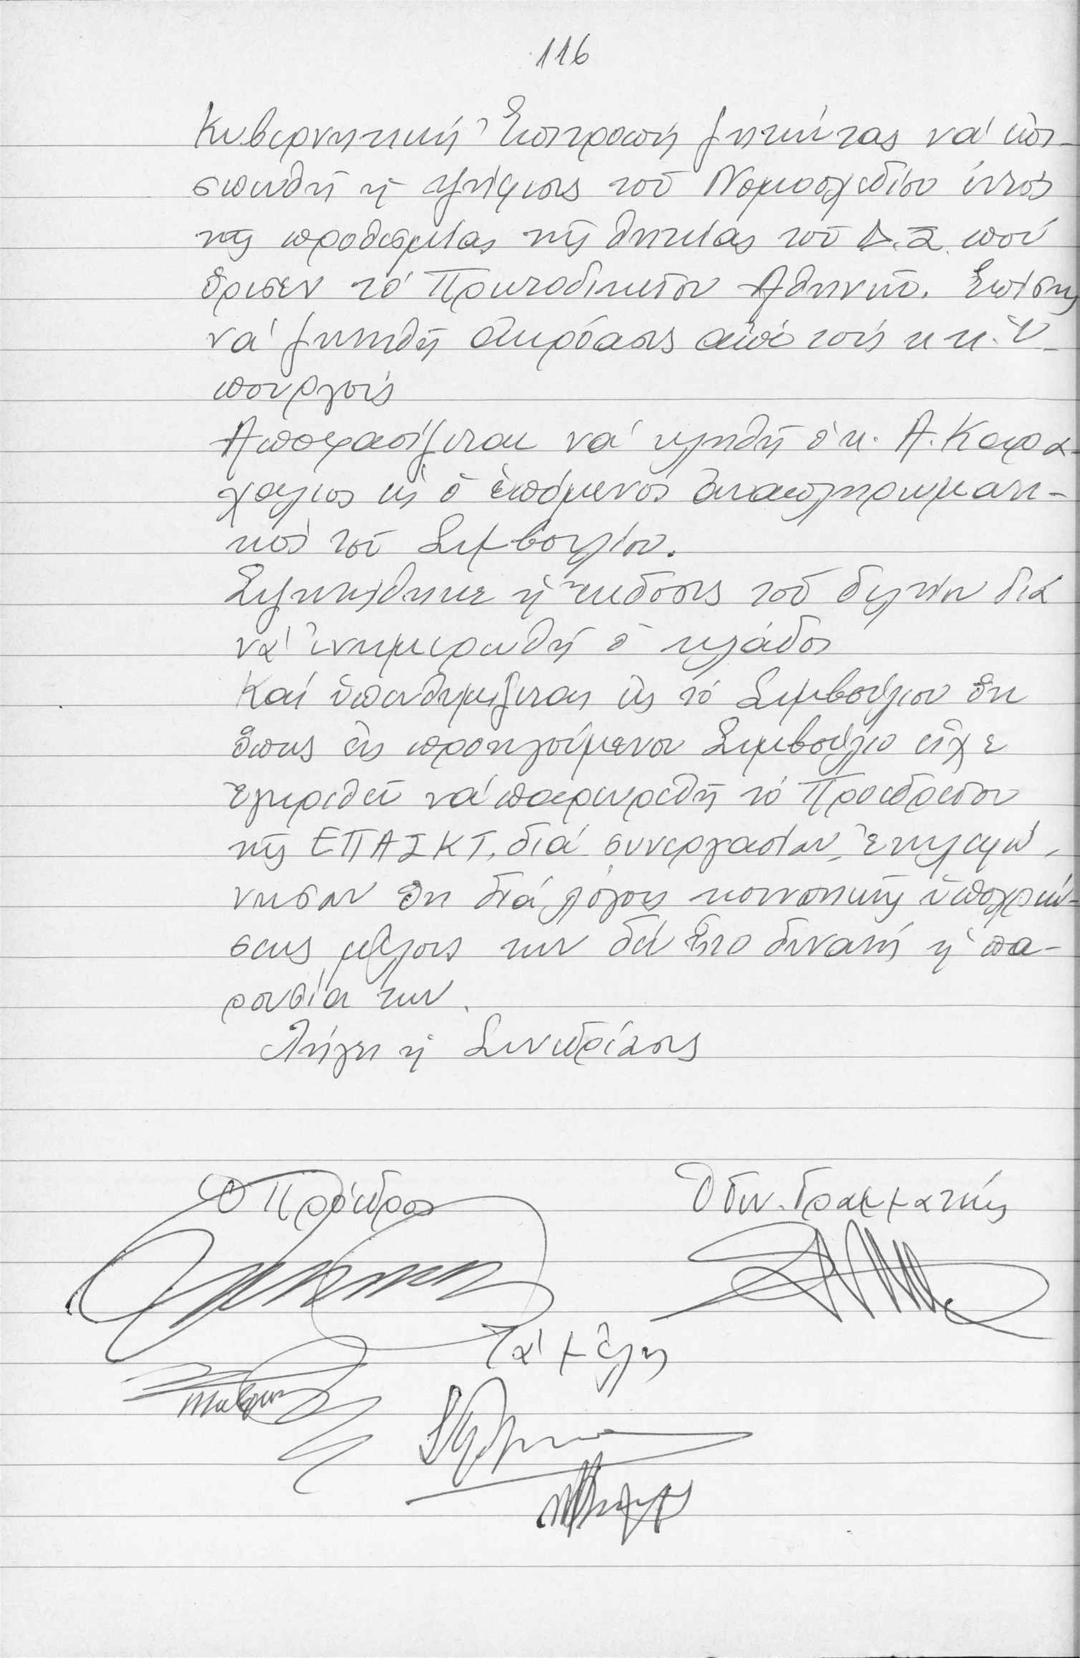 116
Κυβερνητική Ἐπιτροπή ζητώντας νά ἐπι-
σπευθῆ ἡ ψήφισις τοῦ Νομοσχεδίου ἐντός
τῆς προθεσμίας τῆς θητείας τοῦ Δ.Σ. πού
ὅρισεν τό Πρωτοδικεῖον Ἀθηνῶν. Ἐπίσης
νά ζητηθῆ ἀκρόασις ἀπό τούς κ.κ. Ὑ-
πουργούς
Ἀποφασίζεται νά κληθῆ ὁ κ. Α. Καρα-
χάλιος ὡς ὁ ἑπόμενος ἀναπληρωματι-
κός τοῦ Συμβουλίου.
Συζητήθηκε ἡ ἔκδοσις τοῦ δελτίου διά
νά ἐνημερωθῆ ὁ κλάδος
Καί ὑπενθυμίζεται εἰς τό Συμβούλιον ὅτι
ὅπως εἰς προηγούμενον Συμβούλιο εἶχε
ἐγκριθεῖ νά παρευρεθῆ τό Προεδρεῖον
τῆς ΕΠΑΣΚΤ. διά συνεργασίαν, ἐτηλεφώ-
νησαν ὅτι διά λόγους κοινωνικῆς ὑποχρεώ-
σεως μέλους των δέν ἦτο δυνατή ἡ πα-
ρουσία των.
Λήγει ἡ Συνεδρίασις
Ὁ Πρόεδρος
Ὁ Γεν. Γραμματεύς
Τά μέλη